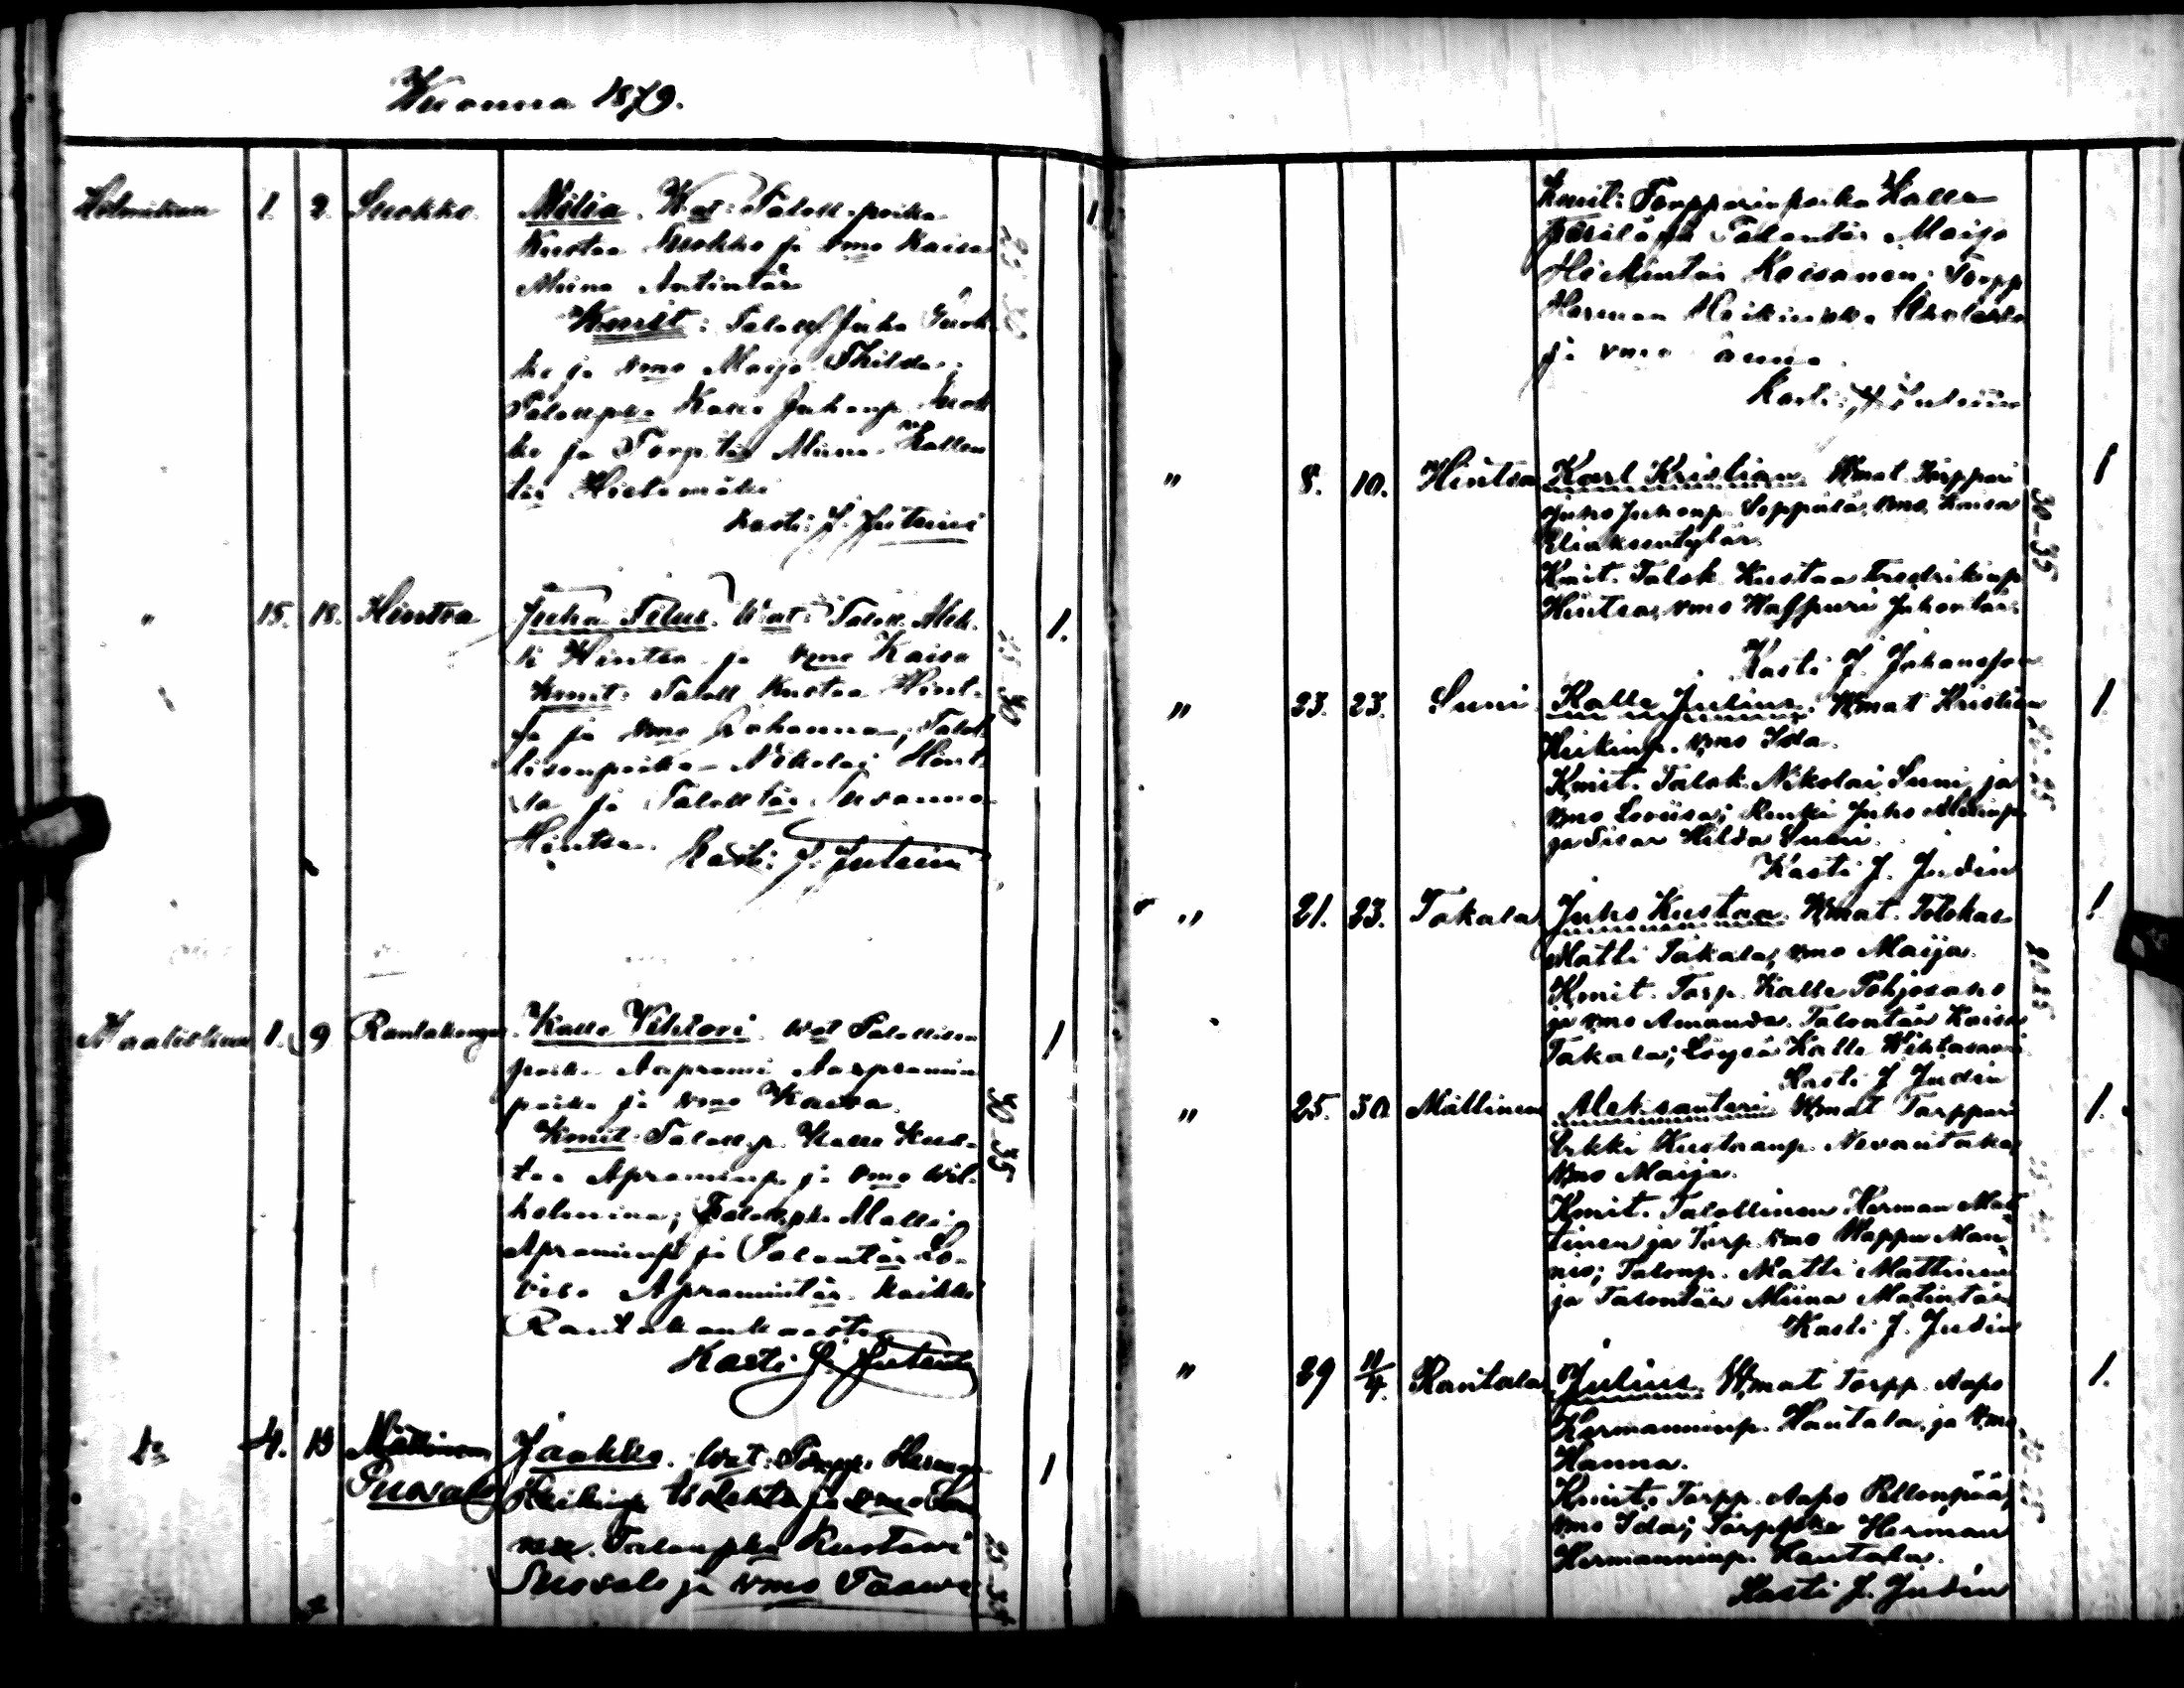 Wuonna 1879.
Helmikuu 1. 2. Suokko. Milia. Wat: Taloll. poika
Kustaa Suokko ja vmo Kaisa
Miina Antintär
Kmit: Taloll. Juho Suok-
ko ja vmo Maija Thilda;
Talollpka Kalle Juhonp. Suok
ko ja Torp.tär Miina Kallen
tär Hietamäki
Kasti: J. Juteini
" 15. 18. Hintsa Juha Vilus. Wat: Taloll. Mat-
ti Hintsa ja vmo Kaisa
Kmit: Taloll Kustaa Hint-
sa ja vmo Johanna, Talol-
lisenpoika Nikolai Hint-
sa ja Talolltär Susanna
Hintsa. Kasti: J. Juteini
Maaliskuu 1. 9 Rantakangas Kalle Vihtori. Wat Talollisen
poika Aaprami Aapramin
poika ja vmo Kaisa.
Kmit: Taloll.p. Kalle Kus-
taa Apraminp. ja vmo Wil-
helmina; Talollpk. Matti
Apraminp. ja Talontär Lo-
visa Apramintär kaikki
Rantakankaasta
Kasti J. Juteini
Do 4. 13 Mattinen
Puovala Jaakko. Wat: Torpp. Herman
Heikinp. ja vmo
Talonpka Kustawi
ja vmo Taawe
Kmit: Torpparinpoika Kalle
ja Talontär Maija
Heikintär Koisanen; Torpp
Herman Heikinpka
ja vmo Anna.
Kasti: J. Juteini
" 8. 10. Hintsa Karl Kristian Wmat. Torppari
Juho Juhonp. Seppälä, vmo, Kaisa
Eliaksentytär.
Kmit. Talok. Kustaa Fredrikinp
Hintsa, vmo Walpuri Juhontär.
Kasti J. Johansson
" 23. 23. Suni Kalle Julius. Wmat Kristian
Heikinp. vmo Ida.
Kmit. Talok. Nikolai Suni ja
vmo Loviisa; Renki Juho Miinap
ja Sisar Hilda Suni.
Kasti J. Judin
" 21. 23. Takala Juho Kustaa. Wmat. Talokas
Matti Takala, vmo Maija.
Kmit. Torp. Kalle Pohjosaho
ja vmo Amanda. Talontär Kaisa
Takala; Loysä Kalle Wihtasaari
Kasti J Judin
" 25. 30 Mattinen Aleksanteri Wmat Torppari
Erkki Kustaanp. Nevantaka,
vmo Maija.
Kmit. Talollinen Herman Mat
tinen ja Torp. vmo Wappu Man-
nis; Talonp. Matti Mattinen
ja Talontär Miina Matintär
Kasti J. Judin
" 29 11/4. Rautala Julius. Wmat Torpp. Aapo
Hermanninp. Hautala, ja vmo
Hanna.
Kmit. Torpp. Aapo Pellonpää,
vmo Ida; Torppka Herman
Hermanninp. Hautala.
Kasti J. Judin